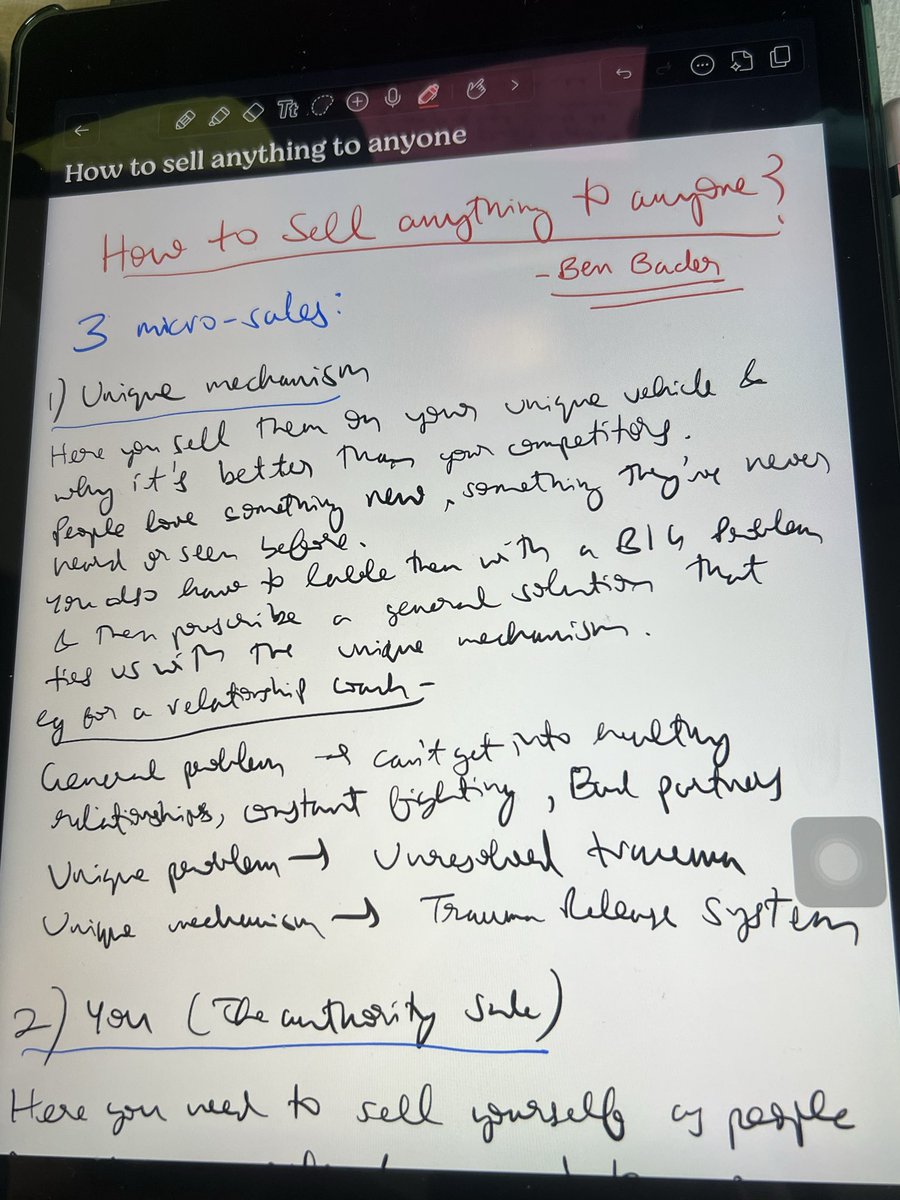 Tt
How to sell anything to anyone
How to sell anything to anyone?
- Ben Bader
3 micro-sales:
1) Unique mechanism
Here you sell them on your unique vehicle &
why it's better than your competitors.
People love something new, something they've never
heard or seen before.
You also have to lable them with a BIG Problem
& then prescribe a general solution that
ties us with the unique mechanism.
eg for a relationship coach -
General problem → can't get into healthy
relationships, constant fighting, Bad partners
Unique problem → Unresolved trauma
Unique mechanism → Trauma Release System
2) You (The authority sale)
Here you need to sell yourself as people